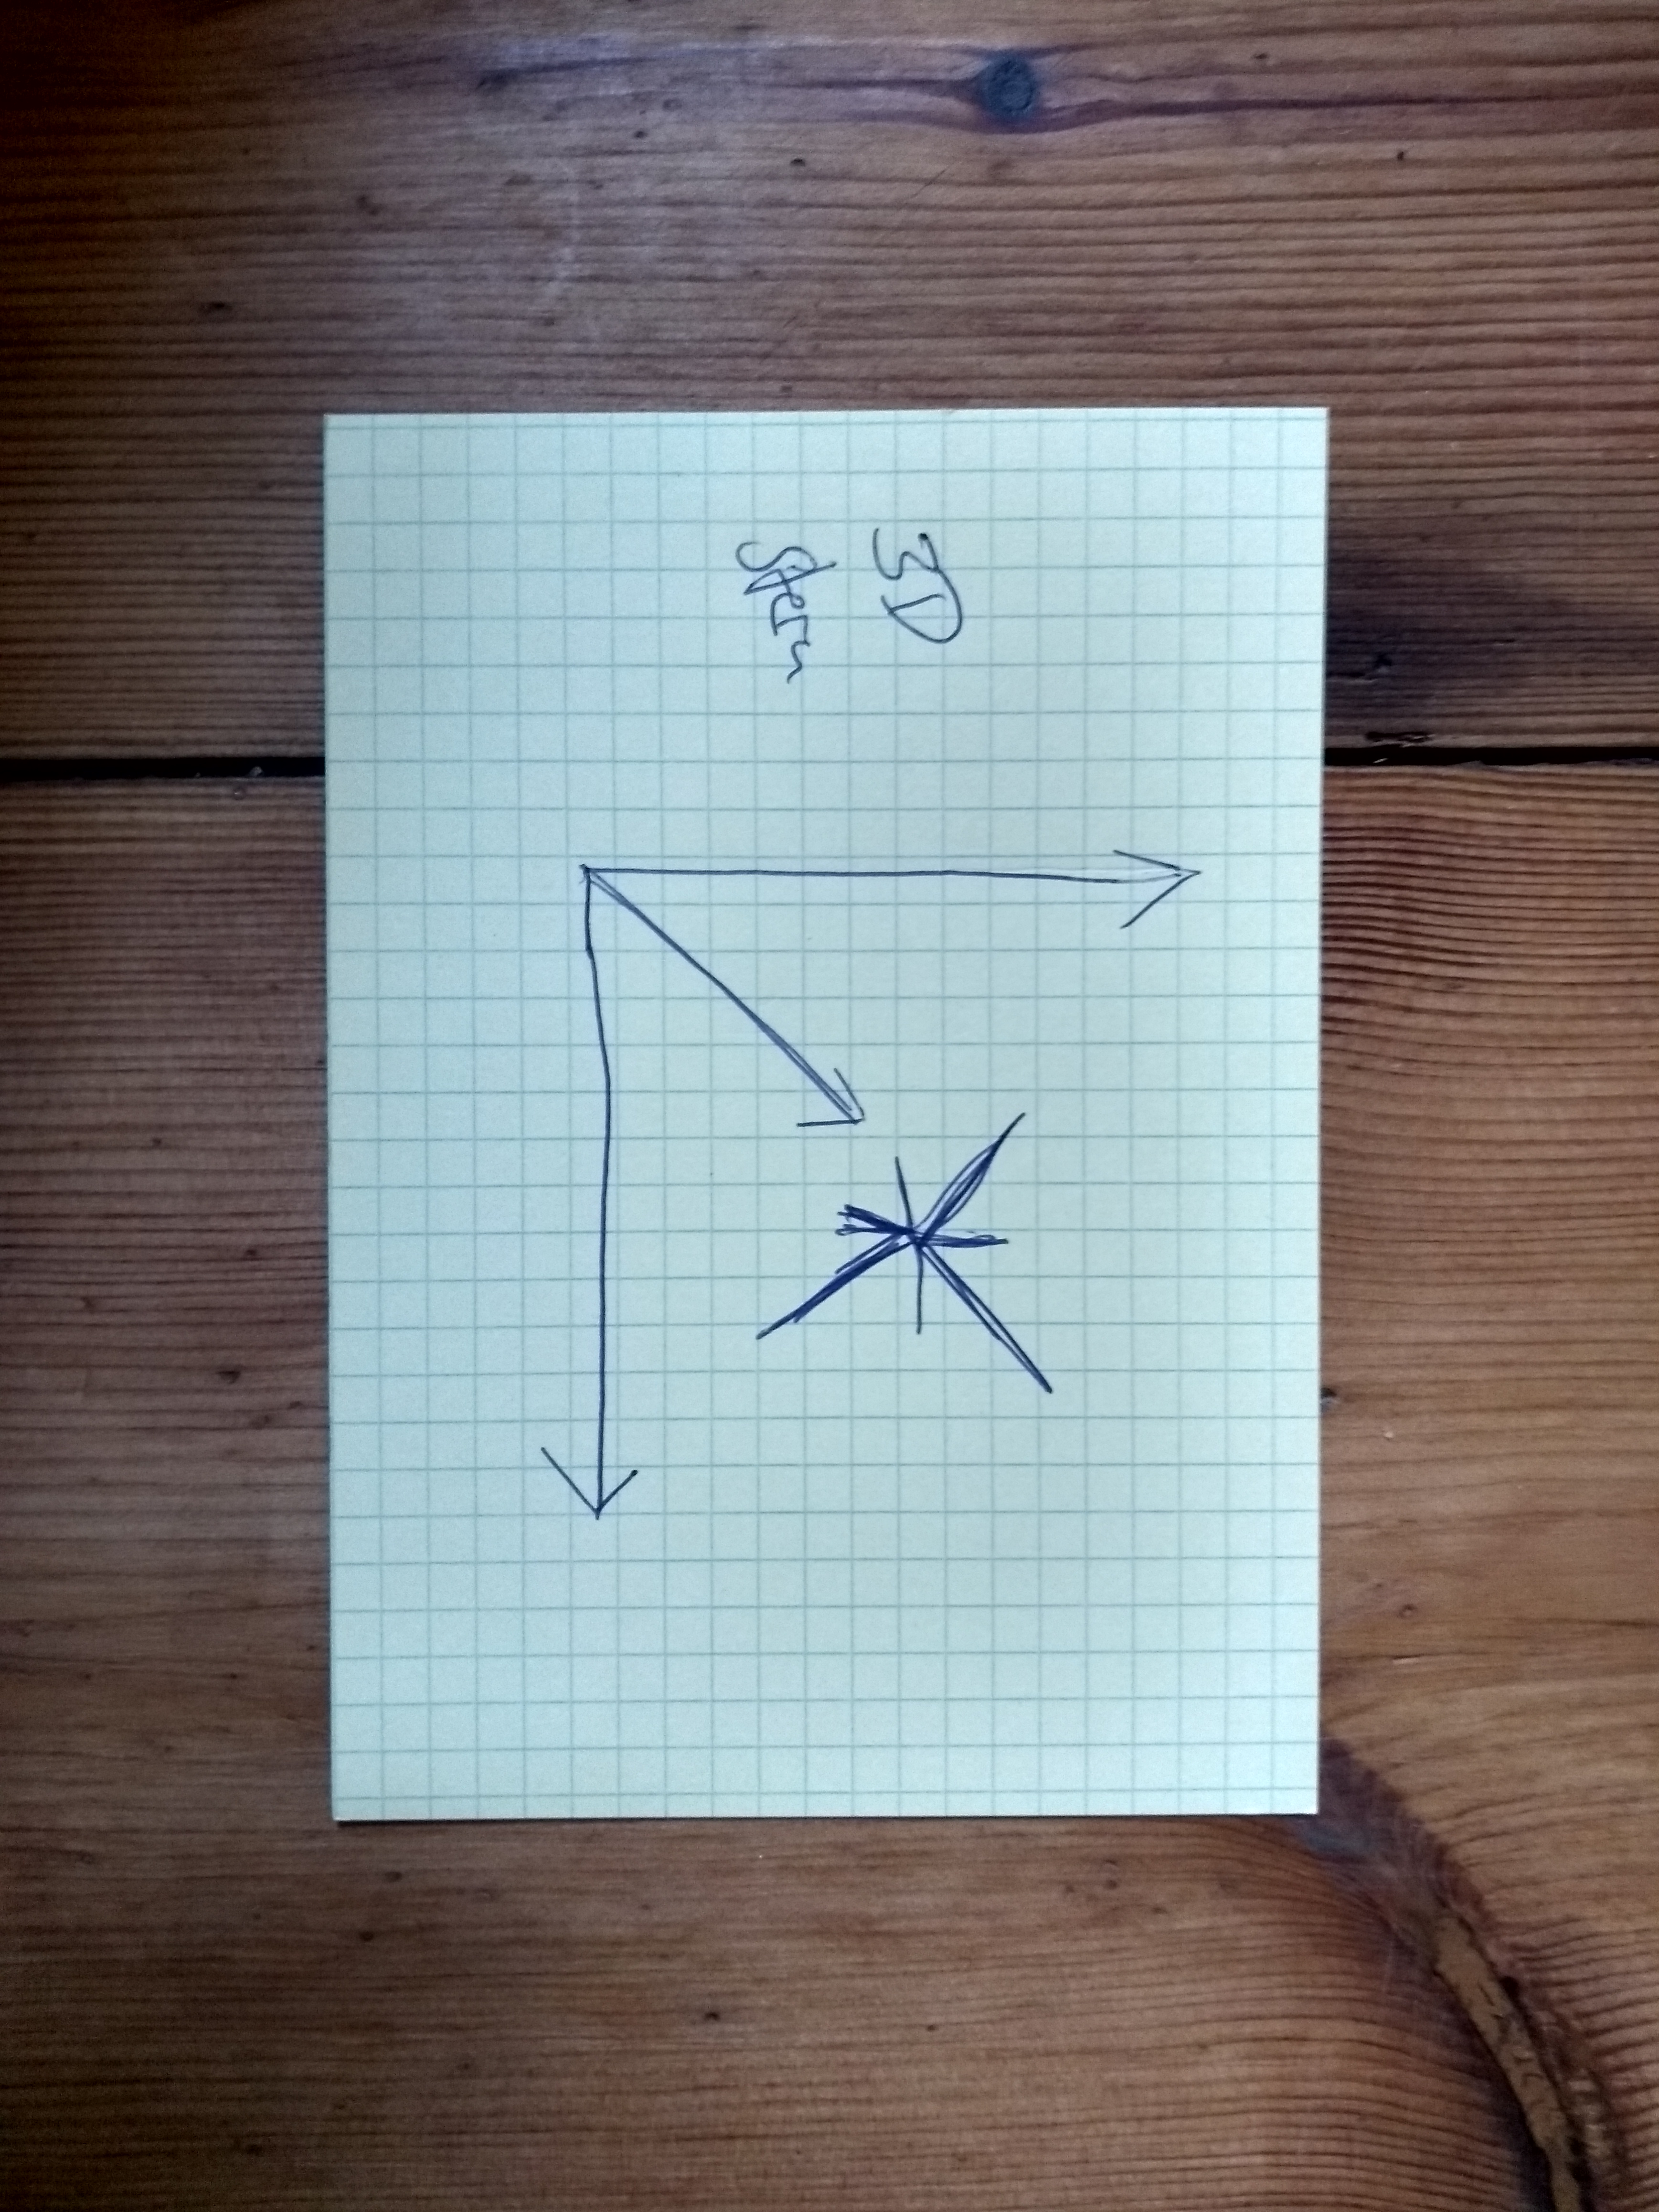 3D
Stern